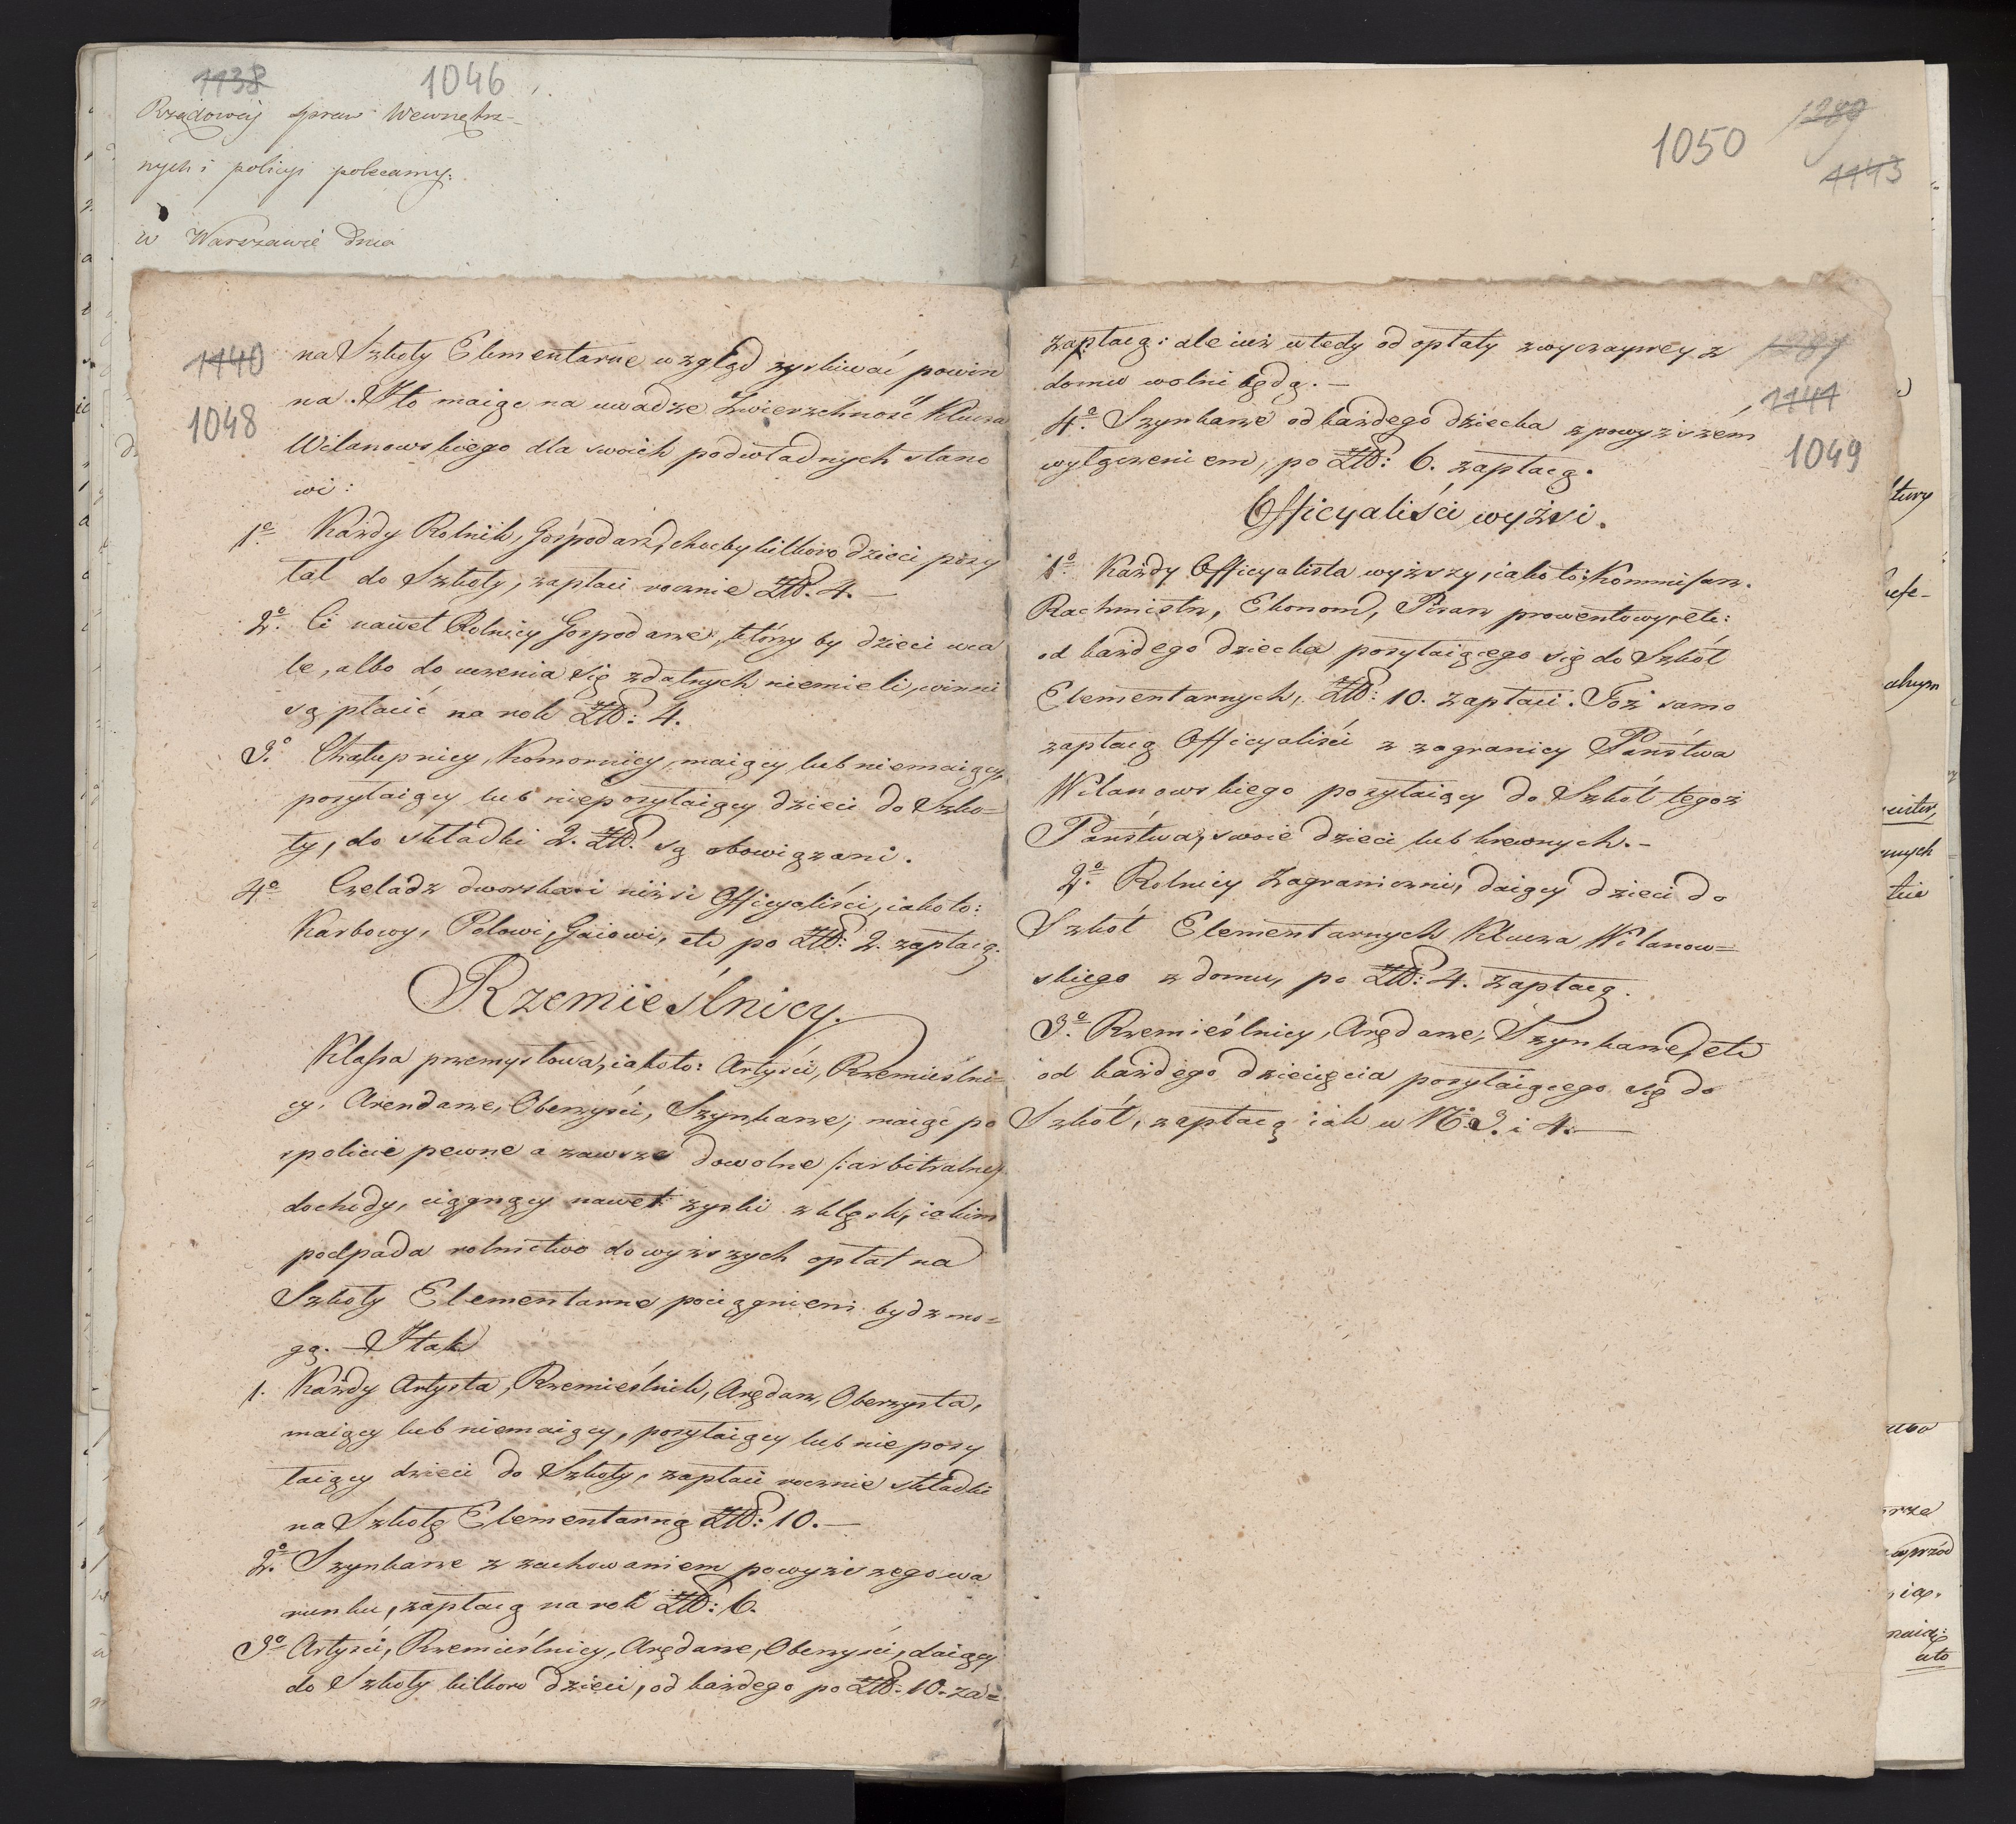 1138 1046
Rządowey spraw Wewnętrz-
nych i policyi polecamy:
w Warszawie dnia
1140
1048
na Szkoły Elementarne wzgląd zyskiwać powin
na. I to maiąc na uwadze Zwierzchność Klucza
Wilanowskiego dla swoich podwładnych stano
wi:
1o. Każdy Rolnik, Gospodarz, choćby kilkoro dzieci posy
łał do Szkoły, zapłaci rocznie Złł. 4. —
2o. Ci nawet Rolnicy Gospodarze, którzy by dzieci wca
le, albo do uczenia się zdatnych niemieli, winni
są płacić na rok Złł: 4.
3o. Chałupnicy, Komornicy, maiący lub niemaiący,
posyłaiący lub nieposyłaiący dzieci do Szko=
ły, do składki 2. Złł. są obowiązani.
4o. Czeladz dworska i niżsi Officyaliści, iako to:
Karbowy, Polowi, Gaiowi, etc po Złł: 2. zapłacą.
Rzemieślnicy.
Klassa przemysłowa, iako to: Artyści, Rzemieślni=
cy, Arendarze, Oberzyści, Szynkarze, maiąc po
spolicie pewne a zawsze dowolne /:arbitralne:/
dochody, ciągnący nawet zyski z klęsk, iakim
podpada rolnictwo do wyższych opłat na
Szkoły Elementarne pociągnieni bydz mo=
gą. — I tak
1. Każdy Artysta, Rzemieślnik, Arędarz, Oberzysta,
maiący lub niemaiący, posyłaiący lub nie posy
łaiący dzieci do Szkoły, zapłaci rocznie składki
na Szkołę Elementarną Złł: 10. —
2o. Szynkarze z zachowaniem powyższego wa
runku, zapłacą na rok Złł: 6.
3o. Artyści, Rzemieślnicy, Arędarze, Oberzyści, daiący
do Szkoły kilkoro dzieci, od każdego po Złł: 10. za=
1050 1289
1143
1287
1141
1049
zapłacą: ale iuż wtedy od opłaty zwyczayney z
domu wolni będą. —
4o. Szynkarze od każdego dziecka z powyższém
wyłączeniem, po Złł: 6. zapłacą.
Officyaliści wyżsi.
1o. Każdy Officyalista wyższy, iako to: Kommissarz.
Rachmistrz, Ekonom, Pisarz prowentowy, etc:
od każdego dziecka posyłaiącego się do Szkół
Elementarnych, Złł: 10. zapłaci. Toż samo
zapłacą Officyaliści z zagranicy Państwa
Wilanowskiego posyłaiący do Szkół tegoż
Państwa, swoie dzieci lub krewnych. —
2o. Rolnicy Zagraniczni, daiący dzieci do
Szkół Elementarnych Klucza Wilanow=
skiego z domu, po Złł: 4. zapłacą.
3o. Rzemieślnicy, Arędarze, Szynkarze, etc
od każdego dziecięcia posyłaiącego się do
Szkół, zapłacą iak w No. 3. i 4. —